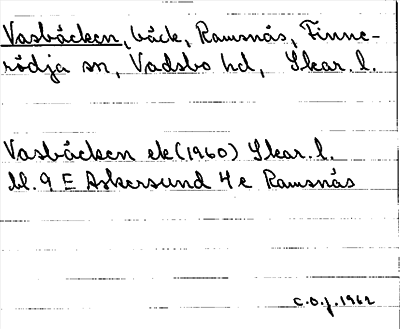 Vasbäcken, bäck, Ramsnäs, Finne-
rödja sn, Vadsbo hd, Skar. l.
Vasbäcken ek (1960) Skar. l.
bl. 9 E Askersund 4 e Ramsnäs
C.O.J. 1962